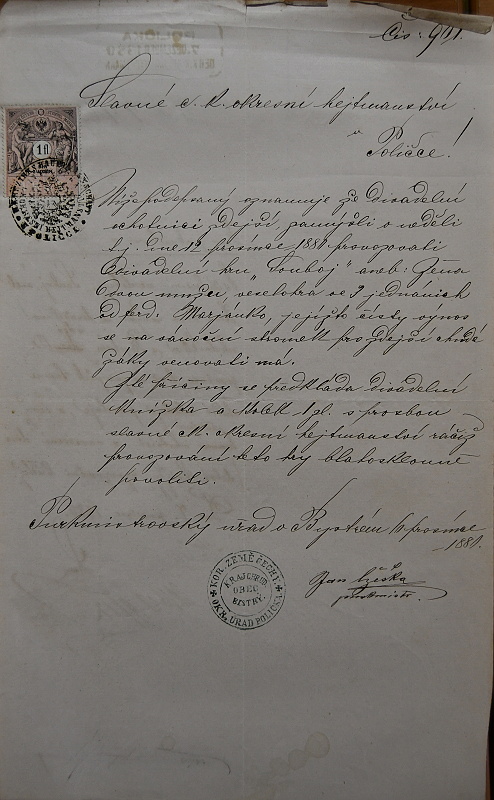 POLIČKA
Čís: 911.
Slavné c. k. okresní hejtmanství
v Poličce!
1 fl
Níže podepsaný oznamuje že divadelní
ochotníci zdejší, zamýšlí v neděli
t. j. dne 12 prosince 1881 provozovati
divadelní hru „Souboj" aneb: Žena
dvou mužů, veselohra ve 3 jednáních
od ferd. jejížto čistý výnos
se na vánoční stromek pro zdejší chudé
žáky venovati má.
Z té příčiny se předkládá divadelní
knížka a kolek 1 zl. s prosbou
slavné ck. okresní hejtmanství račiž
provozování této hry blahosklonně
povoliti.
Purkmistrovský úřad v Bystrém prosince
1881.
KOR. ZEMĚ ČESKÁ
OBEC
BISTRÝ
OKR. ÚŘAD POLIČKA
Jan
purkmistr.